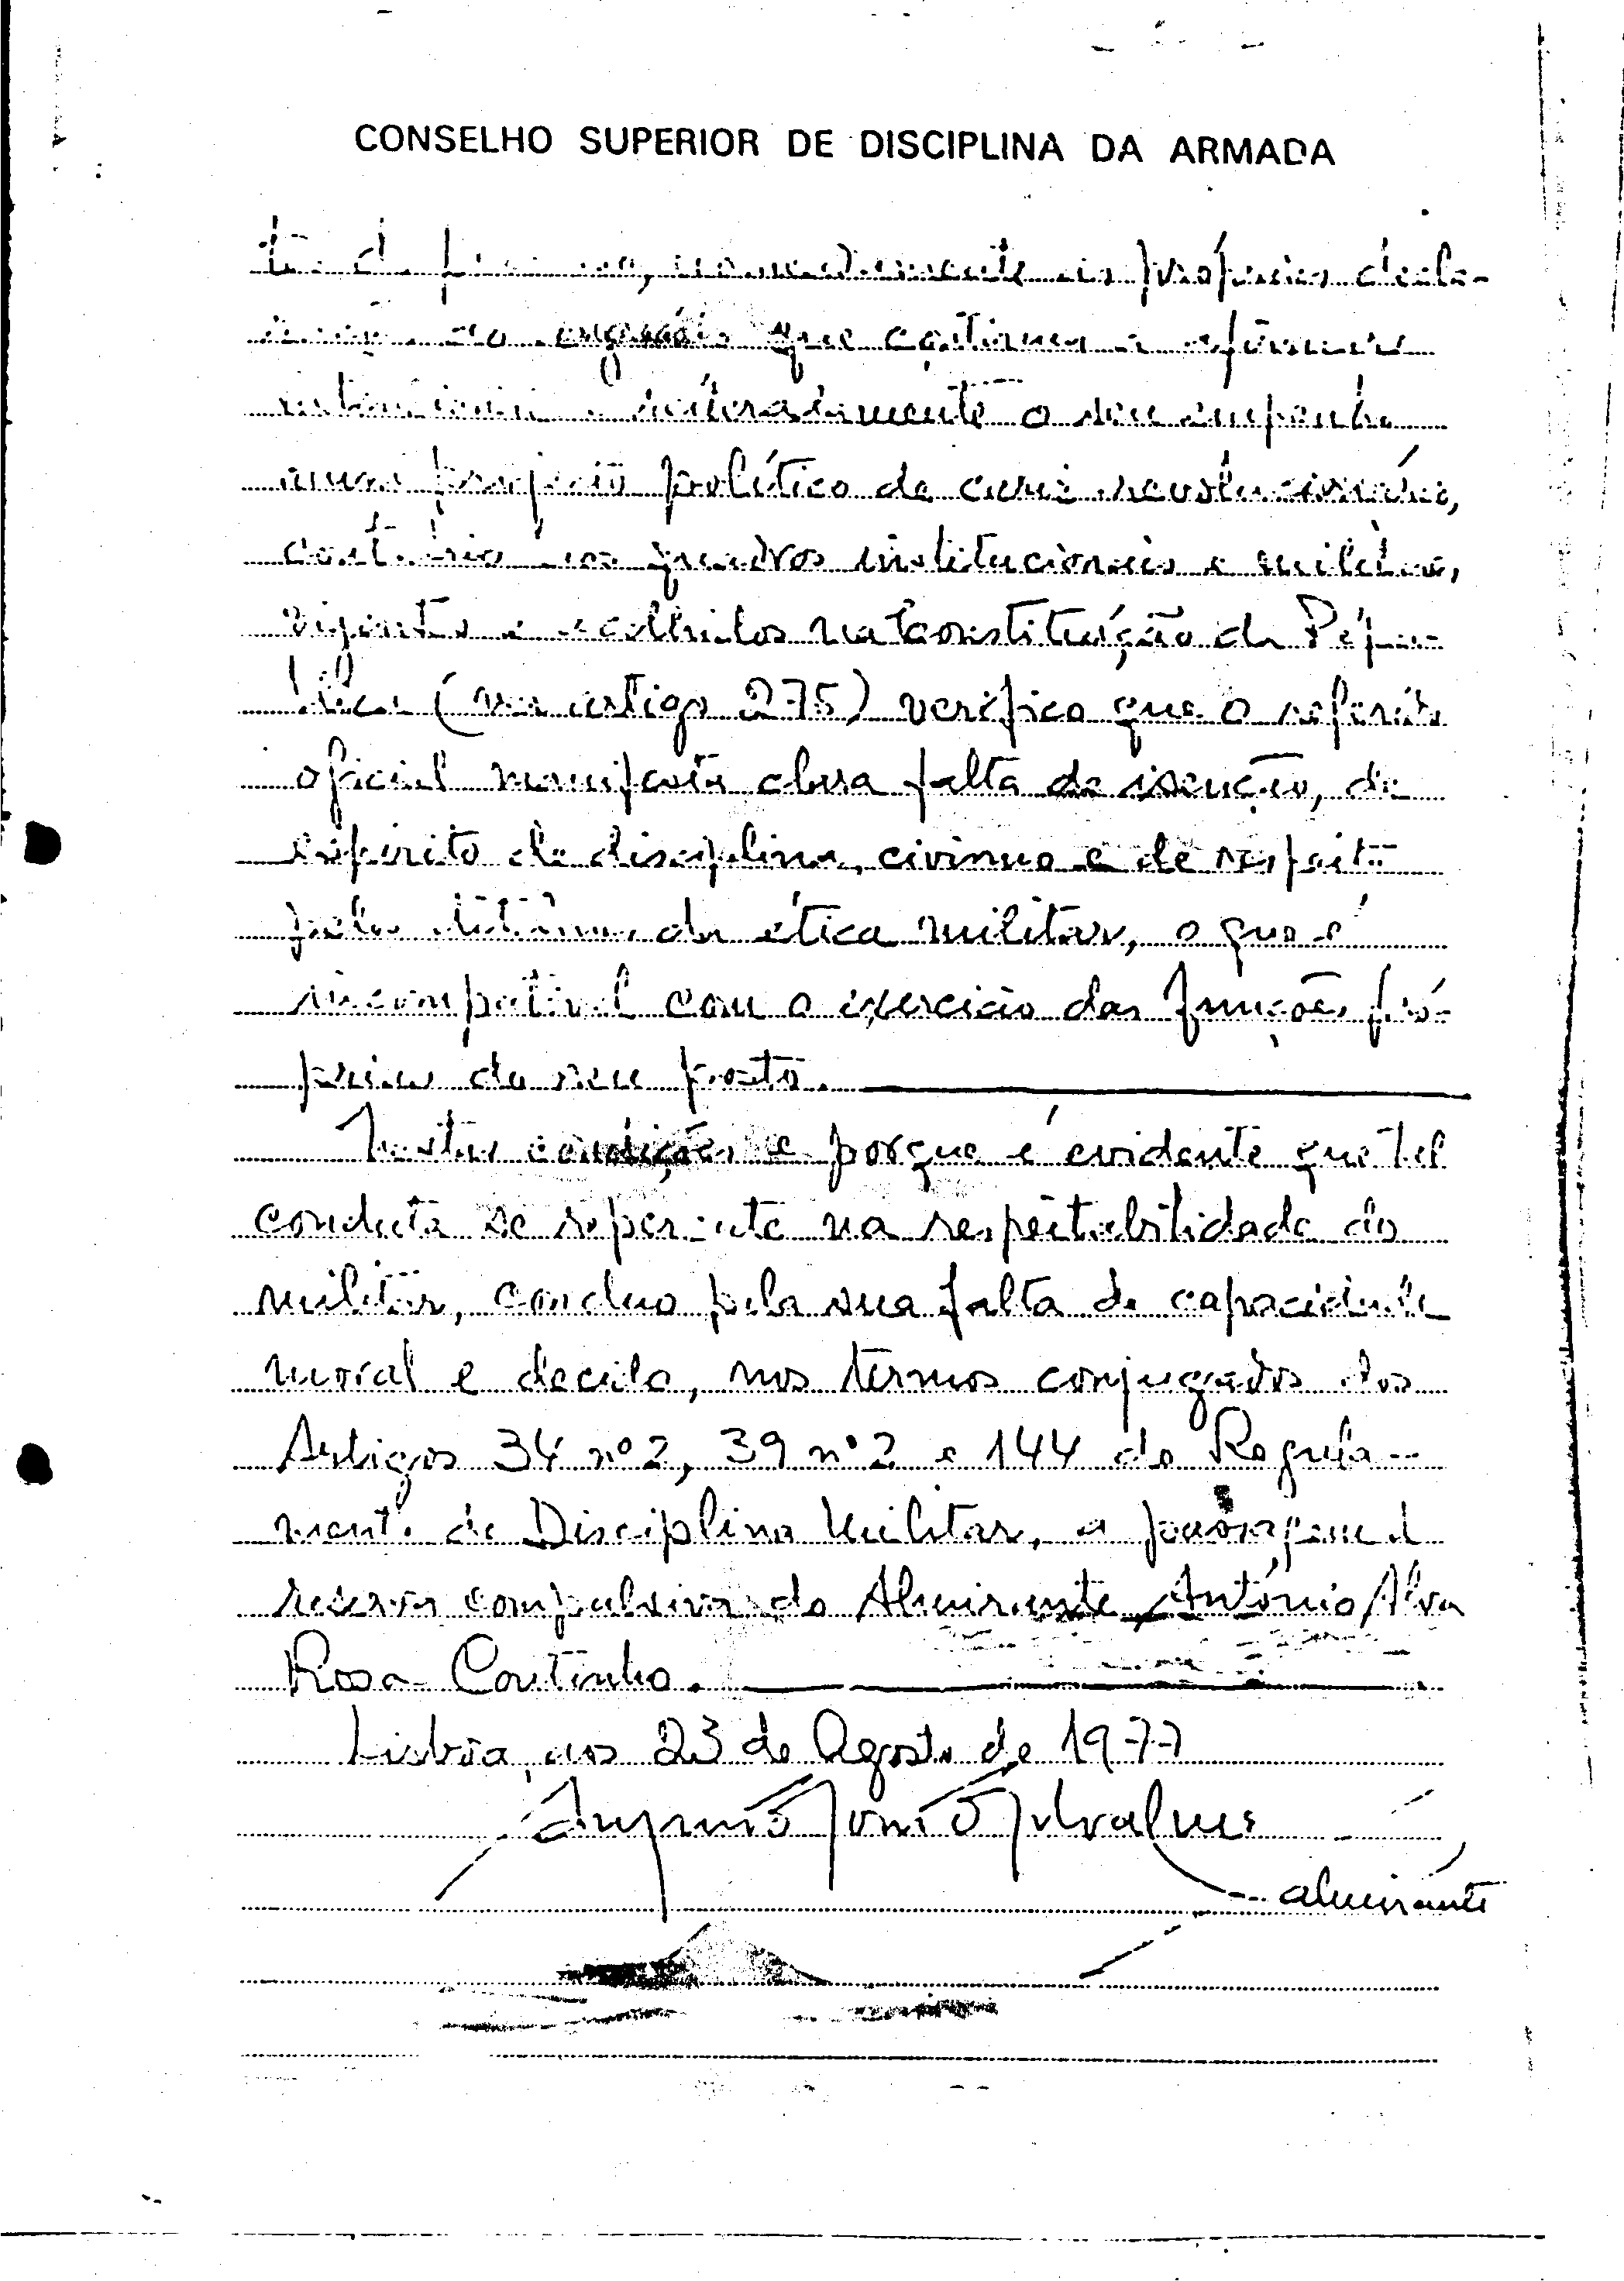 CONSELHO SUPERIOR DE DISCIPLINA DA ARMADA
nomeadamente as próprias decla-
que continua a afirmar
reiteradamente o seu empenho
num projecto político de cariz revolucionário,
contrário aos quadros institucionais e militares,
vigentes e acolhidos na Constituição da Repú-
blica (seu artigo 275) verifico que o referido
oficial manifesta clara falta de isenção, de
espirito de disciplina, civismo e de respeito
pelos ditâmes da ética militar, o que é
incompatível com o exercício das funções pró-
prias do seu posto.
Nestas condições e porque é evidente que tal
conduta se repercute na respeitabilidade do
militar, concluo pela sua falta de capacidade
moral e decido, nos termos conjugados dos
Artigos 34 nº 2, 39 nº 2 e 144 do Regula-
mento de Disciplina Militar, a passagem à
reserva compulsiva do Almirante António Alva
Rosa Coutinho.
Lisboa, aos 23 de Agosto de 1977
almirante